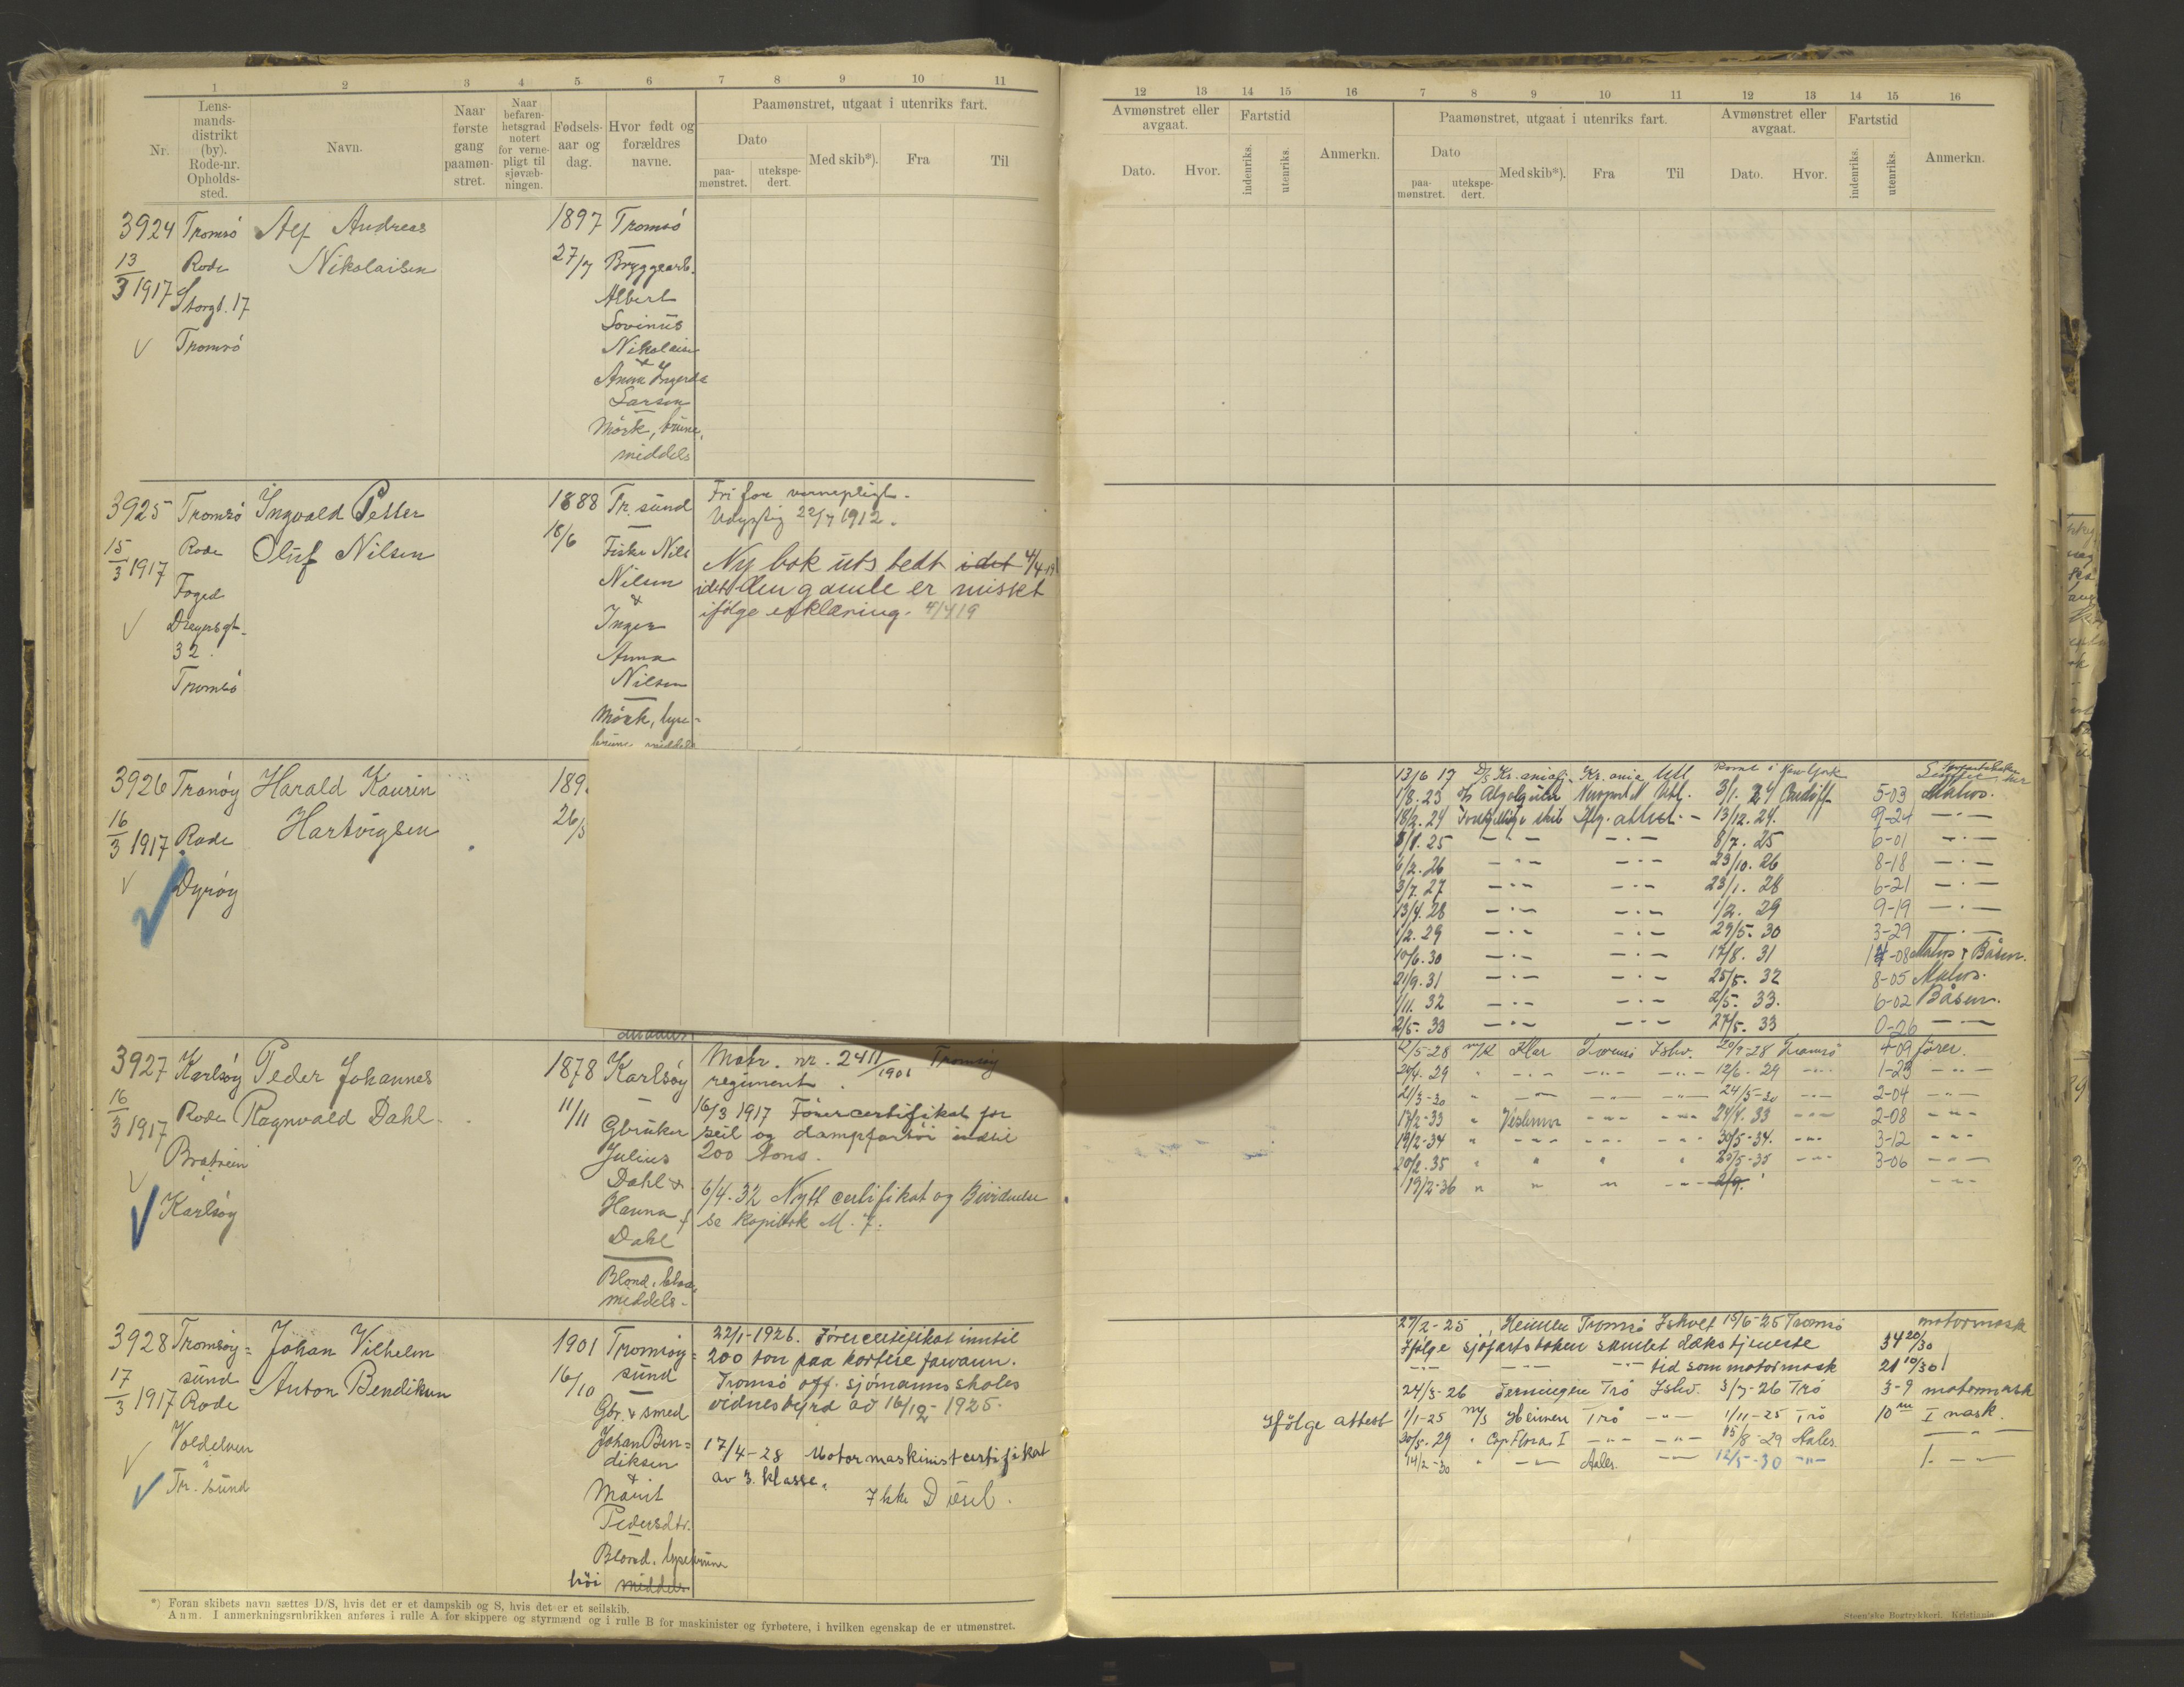 1 2 3 4 5 6 7 8 9 10 11
Nr.
Lens-
mands-
distrikt
(by).
Rode-nr.
Opholds-
sted.
Navn.
Naar
første
gang
paamøn-
stret.
Naar
befaren-
hetsgrad
notert
for verne-
pligt til
sjøvæb-
ningen.
Fødsels-
aar og
dag.
Hvor født og
forældres
navne.
Paamønstret, utgaat i utenriks fart.
Dato
paa-
mønstret.
utekspe-
dert.
Med skib*).
Fra
Til
12 13 14 15 16 7 8 9 10 11 12 13 14 15 16
Avmønstret eller
avgaat.
Dato.
Hvor.
Fartstid
indenriks.
utenriks.
Anmerkn.
Paamønstret, utgaat i utenriks fart.
Dato
paa-
mønstret.
utekspe-
dert.
Med skib*).
Fra
Til
Avmønstret eller
avgaat.
Dato.
Hvor.
Fartstid
indenriks.
utenriks.
Anmerkn.
3924 Tromsö Alf Andreas 1897 Tromsö
13/3 1917 Rode Nikolaisen 27/7 Bryggearb.
Storgt. 17
Tromsö
Albert
Lovinus
Nikolaisen
&
Anna Ingerda
Larsen
Mörk, brune,
middels
3925 Tromsö Ingvald Petter 1888 Tr. sund
15/3 1917 Rode Oluf Nilsen 18/6 Fisker Nils
Foged
Dreyersgt.
32.
Tromsö
Nilsen
&
Inger
Anna
Nilsen
Mörk, lyse-
brune middels
Fri for vernepligt.
22/7 1912.
Ny bok utstedt idet 4/4 19
idet den gamle er mistet
ifölge erklæring. 4/4 19
3926 Tranöy Harald Kaurin 189
16/3 1917 Rode Hartvigsen 26/5
Dyröy
13/6 17 D/S Kr.aniafj. Kr.ania Utl. Römt i New York
1/8. 23 Newport N Utl. 3/1. 24 Cardiff 5-03 Matros.
18/2. 24 Forskjellige skib Iflg. attest. - 13/12. 24. 9-24 -"-
8/1. 25 -"- -"- 8/7. 25 6-01 -"-
6/2. 26 -"- -"- 23/10. 26 8-18 -"-
3/7. 27 -"- -"- 23/1. 28 6-21 -"-
13/4. 28 -"- -"- 1/2. 29 9-19 -"-
1/2. 29 -"- -"- 29/5. 30 3-29 -"-
10/6. 30 -"- -"- 17/8. 31 14-08 Matros & Båsm.
21/9. 31 -"- -"- 25/5. 32 8-05 Matros.
1/11. 32 -"- -"- 2/5. 33. 6-02 Båsm.
2/5. 33 -"- -"- 27/5. 33 0-26 -"-
3927 Karlsöy Peder Johannes 1878 Karlsöy
16/3 1917 Rode Ragnvald Dahl. 11/11 Gbruker
Bratrein
Karlsöy
Julius
Dahl &
Hanna f
Dahl
Blond, blaa,
middels.
Matr. nr. 24 11/1901 Tromsöy
regiment.
16/3 1917 Förercertifikat for
seil og dampfartöi indtil
200 tons.
6/4. 32 Nytt certifikat og Bividnelse
se kopibok M. 7.
12/5-28 m/k Klar Tromsö Ishv. 20/9-28 Tromsö 4-09 förer.
20/4. 29 " -"- -"- -"- 12/6. 29 -"- 1-23 -"-
21/3-30 " -"- -"- -"- 24/5-30 2-04 -"-
17/2-33 " Veslemor -"- -"- 24/4. 33 -"- 2-08 -"-
19/2-34 " -"- -"- -"- 30/5-34. -"- 3-12 -"-
20/2. 35 " " " " 25/5-35 -"- 3-06 -"-
19/2-36 " " " -"- 2/9. -"-
3928 Tromsöy= Johan Vilhelm 1901 Tromsöy=
17/3 1917 sund Anton Bendiksen 16/10 sund
Rode
Voldelven
i
Tr. sund
Gbr. & smed
Johan Ben=
diksen
&
Marit
Pedersdtr.
Blond, lysebrune
höi middels
22/1-1926. Förercertifikat inntil
200 ton paa kortere farvann.
Tromsö off. sjömannsskoles
vidnesbyrd av 16/12-1925.
17/4-28 Motormaskinistcertifikat
av 3. klasse.
Ikke Diesel.
27/2-25 Heimen Tromsö Ishvet 15/6-25 Tromsö motormask
Ifölge sjöfartsboken samlet dækstjeneste 34 20/30
-"- -"- -"- tid som motormask 21 10/30
24/3-26 Terningen Trö Ishv. 3/7-26 Trö 3-9 motormask
Ifölge attest 1/1-25 m/s Heimen Trö -"- 1/11-25 Trö 10 m I mask.
30/5. 29 " Cap Flora I -"- -"- 15/8-29 Aales. -"-
14/2-30 " -"- Aales. -"- 12/5-30 -"- 1. -"-
*) Foran skibets navn sættes D/S, hvis det er et dampskib og S, hvis det er et seilskib.
Anm. I anmerkningsrubrikken anføres i rulle A for skippere og styrmænd og i rulle B for maskinister og fyrbøtere, i hvilken egenskap de er utmønstret.
Steen'ske Bogtrykkeri. Kristiania